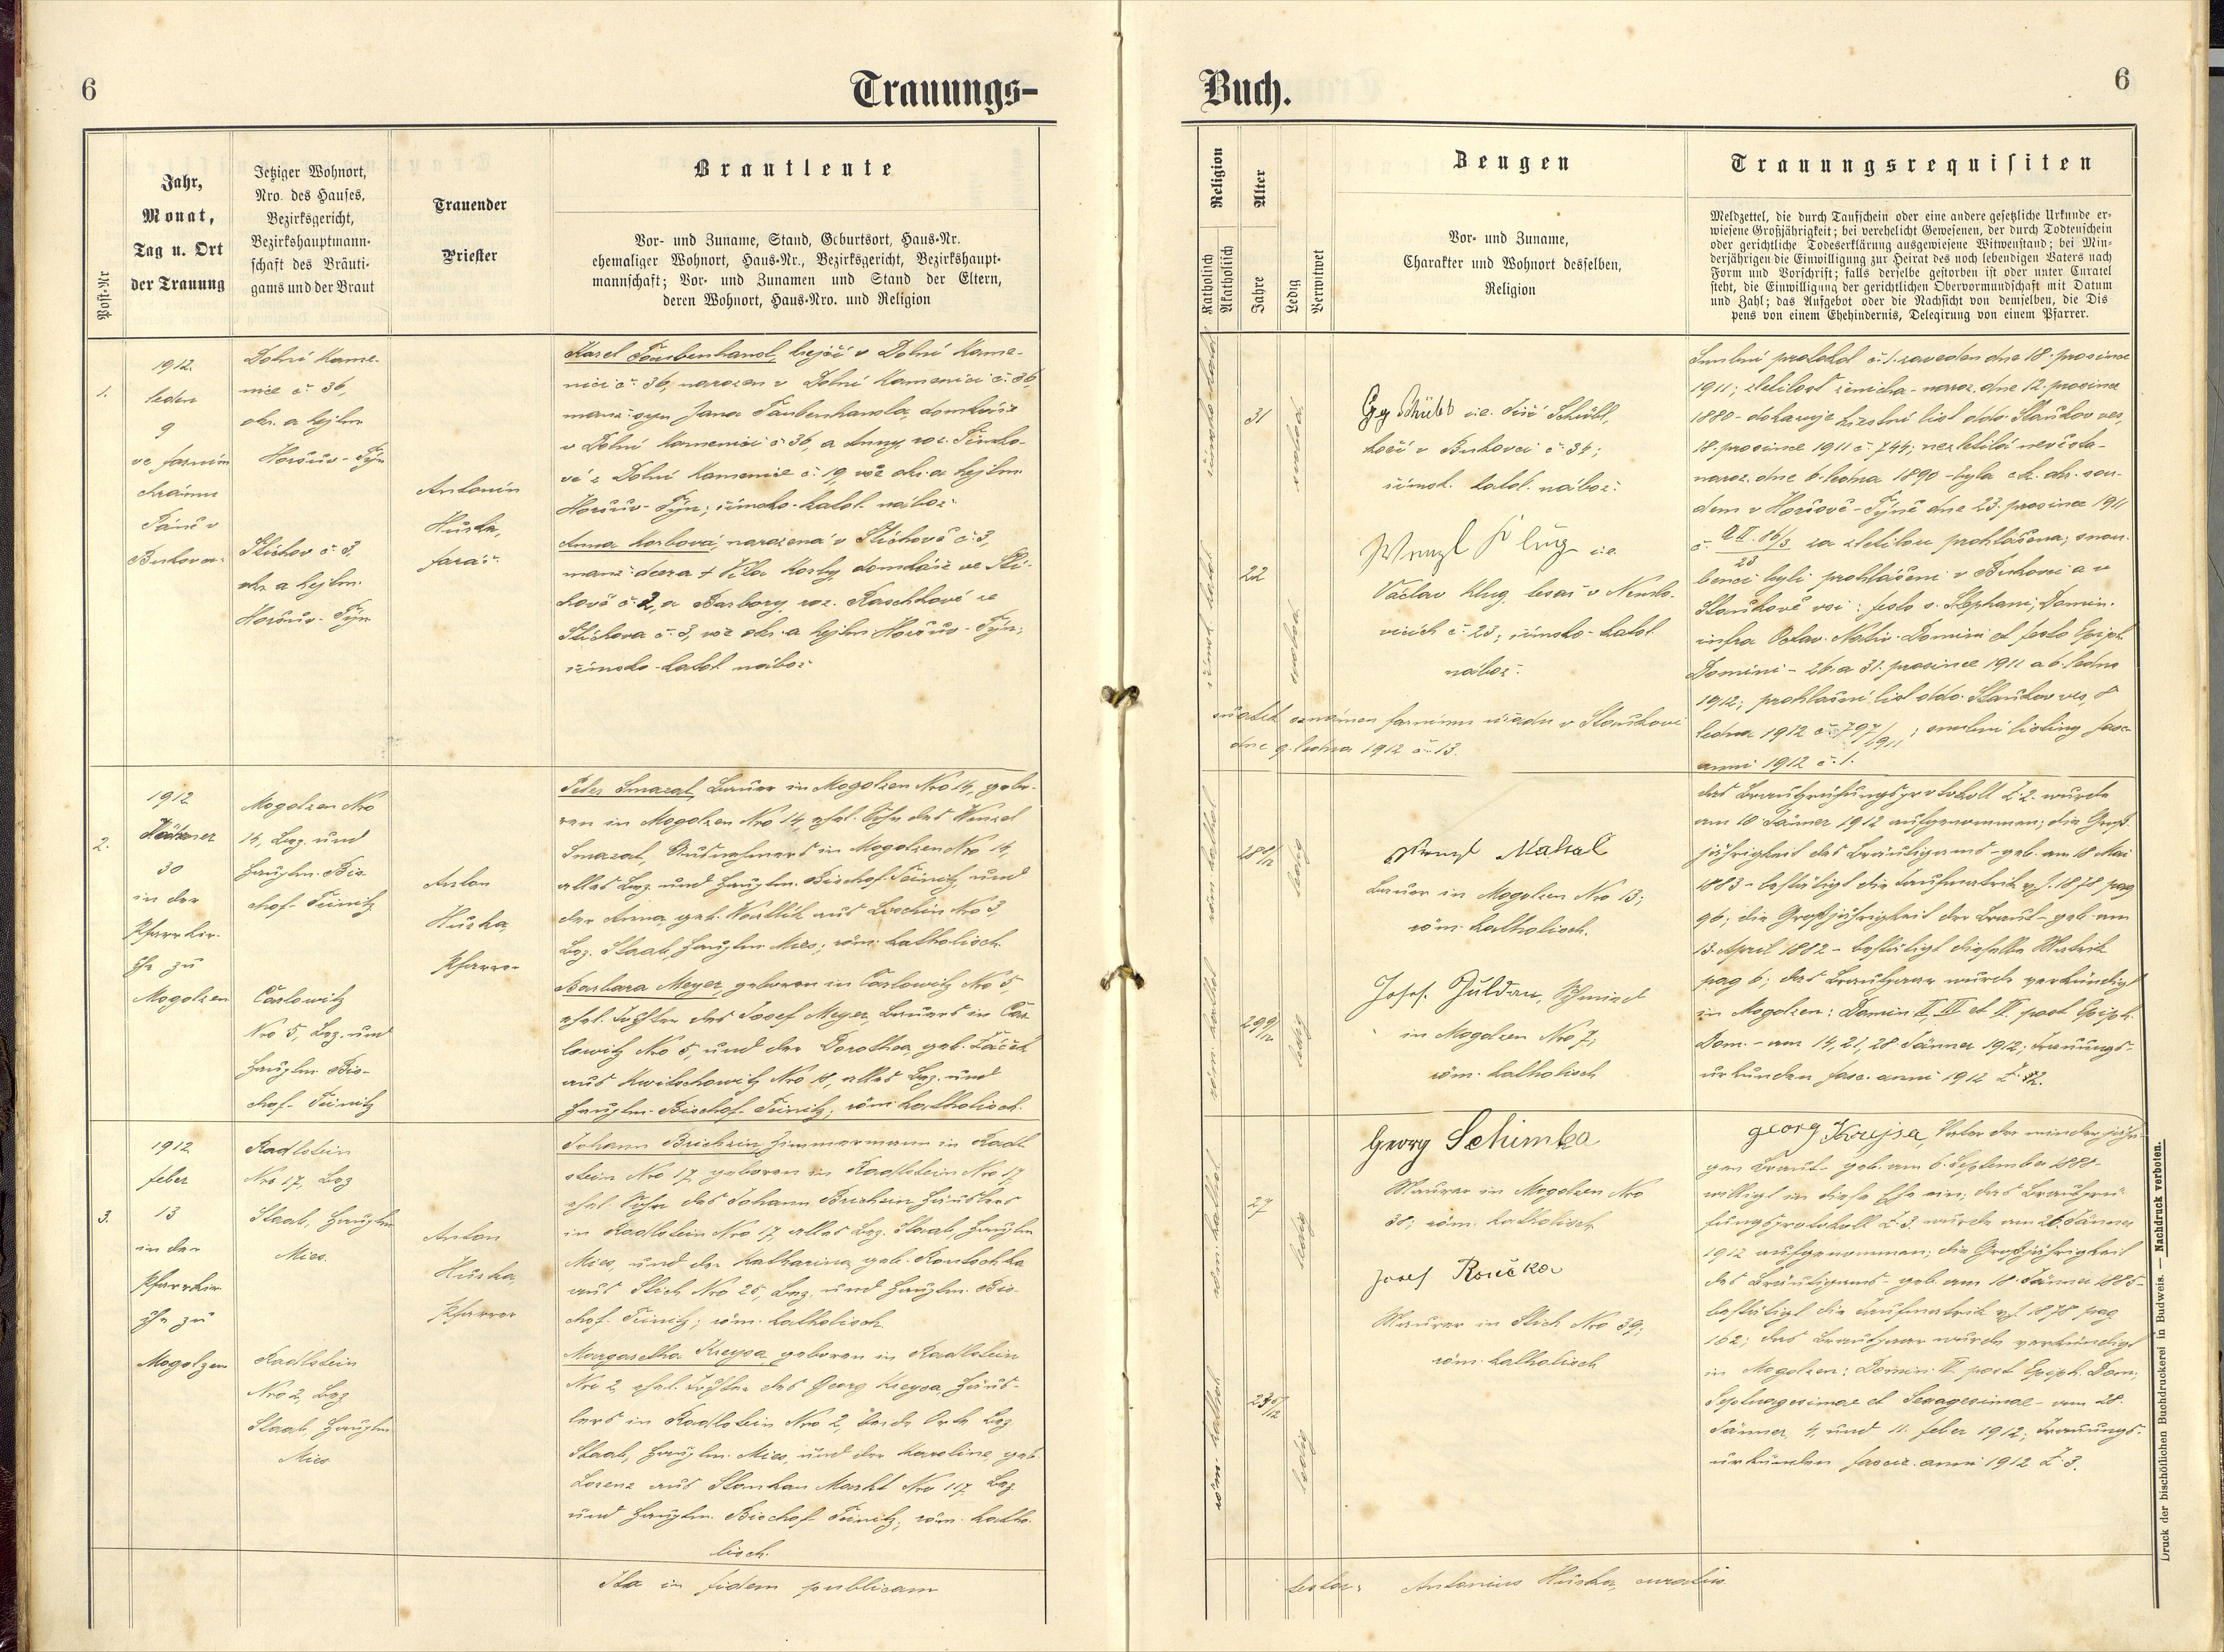 6
Trauungs-
Post-Nr
Jahr,
Monat,
Tag u. Ort
der Trauung
Jetziger Wohnort,
Nro. des Hauses,
Bezirksgericht,
Bezirkshauptmann-
schaft des Bräuti-
gams und der Braut
Trauender
Priester
Brautleute
Vor- und Zuname, Stand, Geburtsort, Haus-Nr.
ehemaliger Wohnort, Haus-Nr., Bezirksgericht, Bezirkshaupt-
mannschaft; Vor- und Zunamen und Stand der Eltern,
deren Wohnort, Haus-Nro. und Religion
1.
1912.
leden
9
ve farním
chrámu
Páně v
Bukovci
Dolní Kame-
nice č. 36,
okr. a hejtm.
Horšův-Týn
Štichov č. 3,
okr. a hejtm.
Horšův-Týn
Antonín
Huska,
farář.
Karel Taubenhansl, krejčí v Dolní Kame-
nici č. 36, narozen v Dolní Kamenici č. 36,
manž. syn Jana Taubenhansla, domkáře
v Dolní Kamenici č. 36, a Anny, roz.
z Dolní Kamenice č. 19, vše okr. a hejtm.
Horšův-Týn; římsko-katol. nábož.
Anna Korbová, narozená v Štichově č. 3,
manž. dcera † Víta Korby, domkáře ve Šti-
chově č. 3, a Barbory, roz. Raschkové ze
Štichova č. 3, vše okr. a hejtm. Horšův-Týn;
římsko-katol. nábož.
2.
1912
Jänner
30
in der
Pfarrkir-
che zu
Mogolzen
Mogolzen Nro
14, Bez. und
Hauptm. Bis-
chof-Teinitz
Čarlowitz
Nro 5, Bez. und
Hauptm. Bis-
chof-Teinitz
Anton
Huska,
Pfarrer
Peter Smazal, Bauer in Mogolzen Nro 14, gebo-
ren in Mogolzen Nro 14, ehel. Sohn des Wenzel
Smazal, Ausnehmers in Mogolzen Nro 14,
alles Bez. und Hauptm. Bischof-Teinitz, und
der Anna, geb. aus Loschin Nro 3,
Bez. Staab, Hauptm. Mies; röm. katholisch.
Barbara Meyer, geboren in Čarlowitz Nro 5,
ehel. Tochter des Josef Meyer, Bauers in Čar-
lowitz Nro 5, und der Dorothea, geb.
aus Kwitschowitz Nro 18, alles Bez. und
Hauptm. Bischof-Teinitz; röm. katholisch.
3.
1912
feber
13
in der
Pfarrkir-
che zu
Mogolzen
Radlstein
Nro 17, Bez
Staab, Hauptm
Mies.
Radlstein
Nro 2, Bez
Staab, Hauptm
Mies
Anton
Huska,
Pfarrer
Johann Brichzin, Zimmermann in Radl-
stein Nro 17, geboren in Radlstein Nro 17,
ehel. Sohn des Johann Brichzin, Häuslers
in Radlstein Nro 17, alles Bez. Staab, Hauptm
Mies, und der Katharina, geb.
aus Stich Nro 25, Bez. und Hauptm. Bis-
chof-Teinitz; röm. katholisch.
Margaretha Kreysa, geboren in Radlstein
Nro 2, ehel. Tochter des Georg Kreysa, Häus-
lers in Radlstein Nro 2, beide Orte Bez.
Staab, Hauptm. Mies, und der Karoline, geb.
Lorenz aus Stankau Markt Nro 117, Bez.
und Hauptm. Bischof-Teinitz; röm. katho-
lisch.
Ita in fidem publicam
6
Buch.
Religion
Katholisch
Akatholisch
Alter
Jahre
Ledig
Verwitwet
Zeugen
Vor- und Zuname,
Charakter und Wohnort desselben,
Religion
Trauungsrequisiten
Meldzettel, die durch Taufschein oder eine andere gesetzliche Urkunde er-
wiesene Großjährigkeit; bei verehelicht Gewesenen, der durch Todtenschein
oder gerichtliche Todeserklärung ausgewiesene Witwenstand; bei Min-
derjährigen die Einwilligung zur Heirat des noch lebendigen Vaters nach
Form und Vorschrift; falls derselbe gestorben ist oder unter Curatel
steht, die Einwilligung der gerichtlichen Obervormundschaft mit Datum
und Zahl; das Aufgebot oder die Nachsicht von demselben, die Dis
pens von einem Ehehindernis, Delegirung von einem Pfarrer.
římsko-katol.
31
22
Gg Schübl i.e. Jiří Schübl,
kočí v Bukovci č. 34;
římsk. katol. nábož.
Wenzl Klug i.e.
Václav Klug, tesař v
č. 23; římsko-katol.
nábož.
sňatek oznámen farnímu úřadu v Staňkově
dne 9. ledna 1912 č. 13.
Snubní protokol č. 1. zaveden dne 18. prosince
1911; zletilost ženicha - naroz. dne 12. prosince
1880 - dokazuje křestní list ddo. Staňkov ves,
18. prosince 1911 č. 744; nezletilá nevěsta -
naroz. dne 6. ledna 1890 - byla c.k. okr. sou-
dem v Horšově-Týně dne 23. prosince 1911
za zletilou prohlášena; snou-
benci byli prohlášeni v Bukovci a v
Staňkově vsi: festo s. Stephani, Domin.
infra Octav. Nativ. Domini et festo Epiph.
Domini - 26. a 31. prosince 1911 a 6. ledna
1912; prohlašní list ddo. Staňkov ves, 8
ledna 1912 č. 797/1911; snubní listiny fasc.
anni 1912 č. 1.
röm. kathol.
28 8/12
ledig
röm. kathol.
29 9/12
ledig
Wenzl Mahal
Bauer in Mogolzen Nro 13;
röm. katholisch.
Josef Puldau, Schmied
in Mogolzen Nro 7;
röm. katholisch
das Brautprüfungsprotokoll Z. 2. wurde
am 10 Jänner 1912 aufgenommen; die Groß-
jährigkeit des Bräutigams - geb. am 18 Mai
1883 - bestätigt die Taufmatrik v. J. 1878 pag
96; die Großjährigkeit der Braut - geb. am
13. April 1882 - bestätigt dieselbe Matrik
pag 6; das Brautpaar wurde verkündigt
in Mogolzen: Domin II, III et IV. post Epiph.
Dom. - am 14, 21, 28 Jänner 1912; Trauungs-
urkunden fasc. anni 1912 Z. 2.
röm. kathol.
27
ledig
röm. kathol.
ledig
Georg Schimka
Maurer in Mogolzen Nro
38; röm. katholisch
Josef Roučka
Maurer in Stich Nro 39;
röm. katholisch
georg Krejsa, Vater der minderjähri-
gen Braut - geb. am 6. September 1888 -
willigt in diese Ehe ein; das Brautprü-
fungsprotokoll Z. 3. wurde am 26. Jänner
1912 aufgenommen; die Großjährigkeit
des Bräutigams - geb. am 18. Jänner 1885 -
bestätigt die Taufmatrik v. J. 1878 pag
162; das Brautpaar wurde verkündigt
in Mogolzen: Domin. IV. post Epiph. Dom;
Septuagesimae et Sexagesimae - am 28.
Jänner, 4. und 11. feber 1912; Trauungs-
urkunden fascic. anni 1912 Z. 3.
testor: Antonius Huska, curatus.
Druck der bischöflichen Buchdruckerei in Budweis. — Nachdruck verboten.